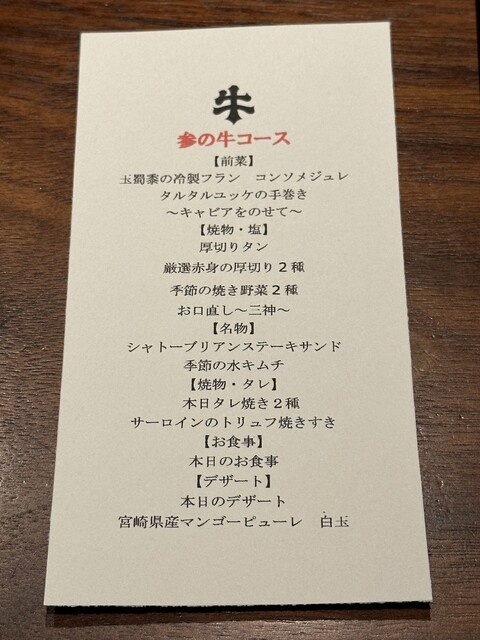 牛
参の牛コース
【前菜】
玉蜀黍の冷製フラン　コンソメジュレ
タルタルユッケの手巻き
～キャビアをのせて～
【焼物・塩】
厚切りタン
厳選赤身の厚切り２種
季節の焼き野菜２種
お口直し～三神～
【名物】
シャトーブリアンステーキサンド
季節の水キムチ
【焼物・タレ】
本日タレ焼き２種
サーロインのトリュフ焼きすき
【お食事】
本日のお食事
【デザート】
本日のデザート
宮崎県産マンゴーピューレ　白玉